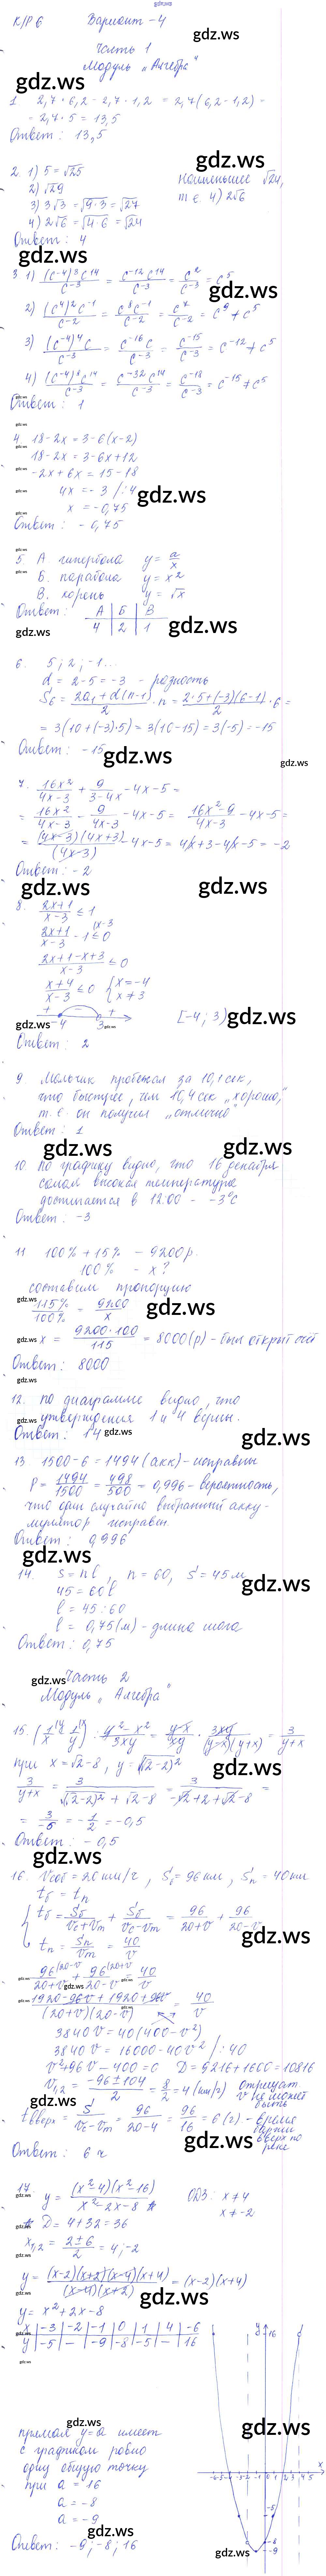 К/Р 6 Вариант - 4
Часть 1
Модуль „Алгебра"
1. 2,7 · 6,2 - 2,7 · 1,2 = 2,7(6,2 - 1,2) =
= 2,7 · 5 = 13,5
Ответ: 13,5
2. 1) 5 = √25
2) √29
3) 3√3 = √9·3 = √27
4) 2√6 = √4·6 = √24
наименьшее √24,
т.е. 4) 2√6
Ответ: 4
Ответ: 1
4. 18 - 2x = 3 - 6(x-2)
18 - 2x = 3 - 6x + 12
-2x + 6x = 15 - 18
4x = -3 /:4
x = -0,75
Ответ: -0,75
5. А. гипербола y = a/x
Б. парабола y = x²
В. корень y = √x
Ответ: А | Б | В
4 | 2 | 1
6. 5; 2; -1...
d = 2 - 5 = -3 - разность
S₆ = (2a₁ + d(n-1))/2 · n = (2·5 + (-3)(6-1))/2 · 6 =
= 3(10 + (-3)·5) = 3(10 - 15) = 3(-5) = -15
Ответ: -15
7. 16x²/(4x-3) + 9/(3-4x) - 4x - 5 =
= 16x²/(4x-3) - 9/(4x-3) - 4x - 5 = (16x²-9)/(4x-3) - 4x - 5 =
= (4x-3)(4x+3)/(4x-3) - 4x - 5 = 4x + 3 - 4x - 5 = -2
Ответ: -2
8. (2x+1)/(x-3) ≤ 1
(2x+1)/(x-3) - 1 ≤ 0
(2x+1-x+3)/(x-3) ≤ 0
(x+4)/(x-3) ≤ 0 { x = -4
x ≠ 3
[-4; 3)
Ответ: 2
9. Мальчик пробежал за 10,1 сек,
что быстрее, чем 10,4 сек „хорошо",
т.е. он получил „отлично"
Ответ: 1
10. По графику видно, что 16 декабря
самая высокая температура
достигается в 12:00 - -3°С
Ответ: -3
11. 100% + 15% - 9200 р.
100% - x?
составим пропорцию
115%/100% = 9200/x
x = 9200·100/115 = 8000 (р) - был открыт счёт
Ответ: 8000
12. По диаграмме видно, что
утверждения 1 и 4 верны.
Ответ: 14
13. 1500 - 6 = 1494 (акк) - исправны
P = 1494/1500 = 498/500 = 0,996 - вероятность,
что один случайно выбранный акку-
мулятор исправен.
Ответ: 0,996
14. S = nl, n = 60, S = 45 м
45 = 60l
l = 45 : 60
l = 0,75 (м) - длина шага
Ответ: 0,75
Часть 2
Модуль „Алгебра"
15. (1/x - 1/y) : (y²-x²)/3xy = (y-x)/xy · 3xy/((y-x)(y+x)) = 3/(y+x)
при x = √2 - 8, y = √(√2-2)²
= 3/-6 = -1/2 = -0,5
Ответ: -0,5
16. Vсоб = 20 км/ч, Sб = 96 км, Sп = 40 км
tб = tп
tб = Sб/(Vс+Vт) + Sб/(Vс-Vт) = 96/(20+V) + 96/(20-V)
tп = Sп/Vт = 40/V
96/(20+V) + 96/(20-V) = 40/V
(1920-96V+1920+96V)/((20+V)(20-V)) = 40/V
3840V = 40(400-V²)
3840V = 16000 - 40V² /:40
V² + 96V - 400 = 0 D = 9216 + 1600 = 10816
V₁,₂ = (-96±104)/2 = 8/2 = 4 (км/ч) отрицат.
V не может
быть
tвверх = S/(Vс-Vт) = 96/(20-4) = 96/16 = 6 (ч) - время
баржи
вверх по
реке
Ответ: 6 ч
17. y = (x²-4)(x²-16)/(x²-2x-8) ОДЗ: x ≠ 4
x ≠ -2
D = 4 + 32 = 36
x₁,₂ = (2±6)/2 = 4; -2
y = (x-2)(x+2)(x-4)(x+4)/((x-4)(x+2)) = (x-2)(x+4)
y = x² + 2x - 8
x | -3 | -2 | -1 | 0 | 1 | 4 | -6
y | -5 | - | -9 | -8 | -5 | - | 16
прямая y=a имеет
с графиком ровно
одну общую точку
при a = 16
a = -8
a = -9
Ответ: -9; -8; 16